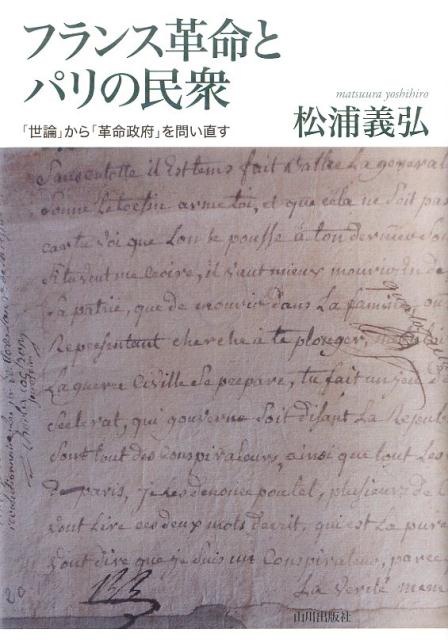 フランス革命と
パリの民衆
「世論」から「革命政府」を問い直す
matsuura yoshihiro
松浦義弘
Sansculotte il Est tems fait Battre La general
Sonne Le tocsin arme toi, et que cela ne Soit pas
car tu voi que Lon te pousse a ton dernier
Si tu veut me croire, il vaut mieux mourir
Sa patrie, que de mourir dans La famine, ou
Representant cherche a te plonger,
La guerre Civille Se prepare, tu fait un jeu
Scelerat, qui gouverne Soit disant La Republ
Sont tout des Conspirateurs, ainsi que tout Les
de paris, je Les denonce
vont Lire ces deux mots decrit, qui est La pure
vont dire que je Suis un Conspirateur, parce
La verité
20
山川出版社